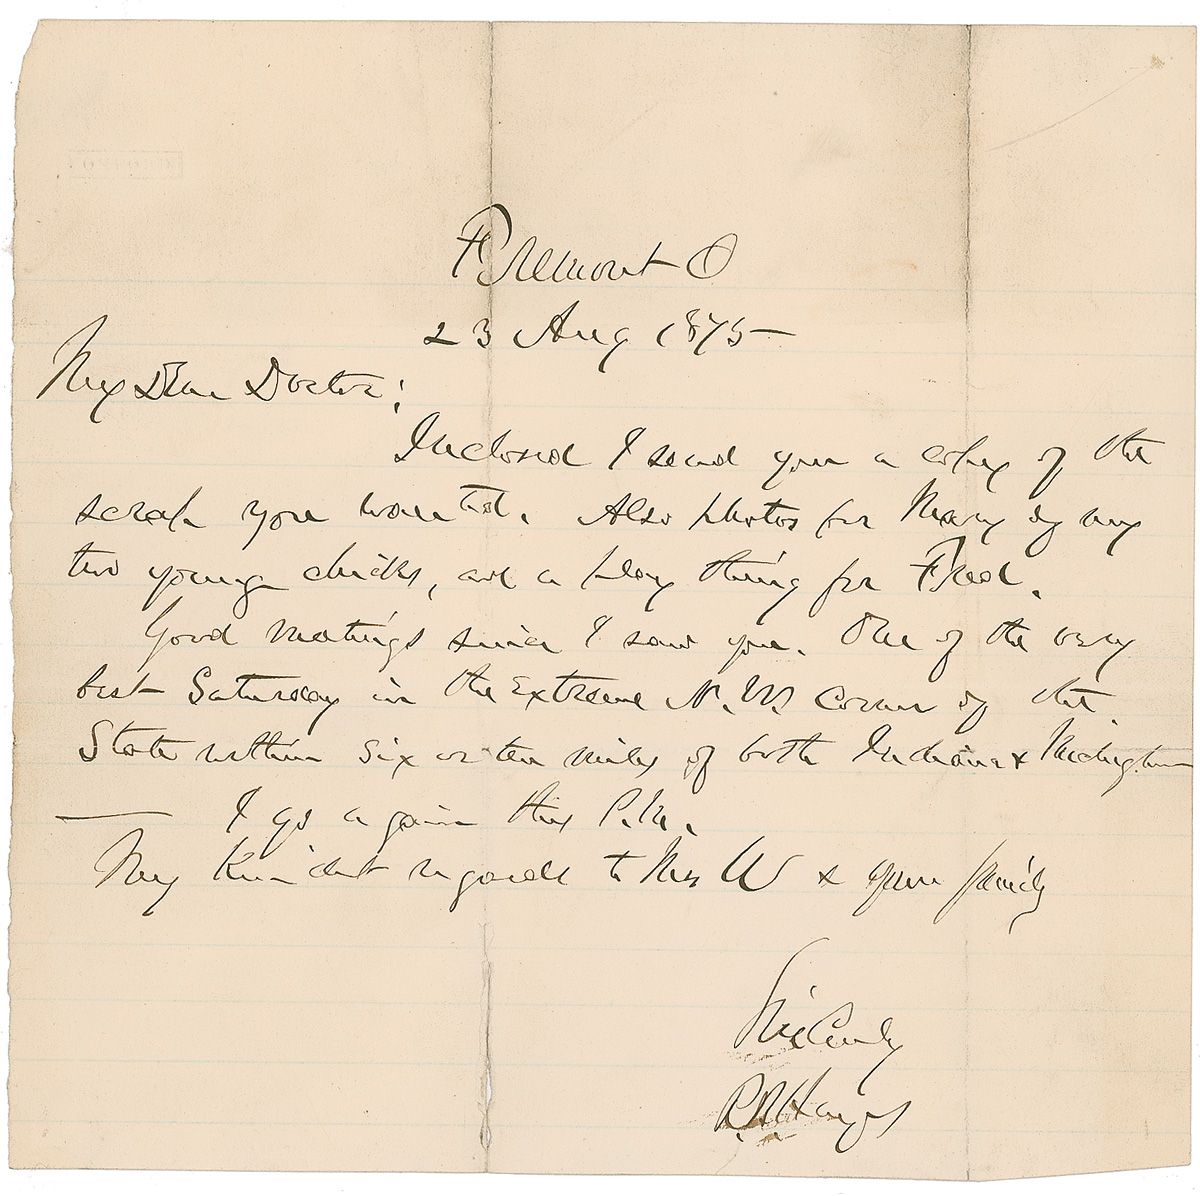 Fremont O
23 Aug 1875
My Dear Doctor:
Inclosed I send you a copy of the
scrap you wanted. Also photos for Mary of my
two young chicks, and a play thing for Fred.
Good meetings since I saw you. One of the very
best Saturday in the Extreme N.W. corner of the
State within six or ten miles of both Indiana & Michigan
— I go again this P.M.
My Kindest regards to Mrs W & your family
Sincerely
R.B. Hayes